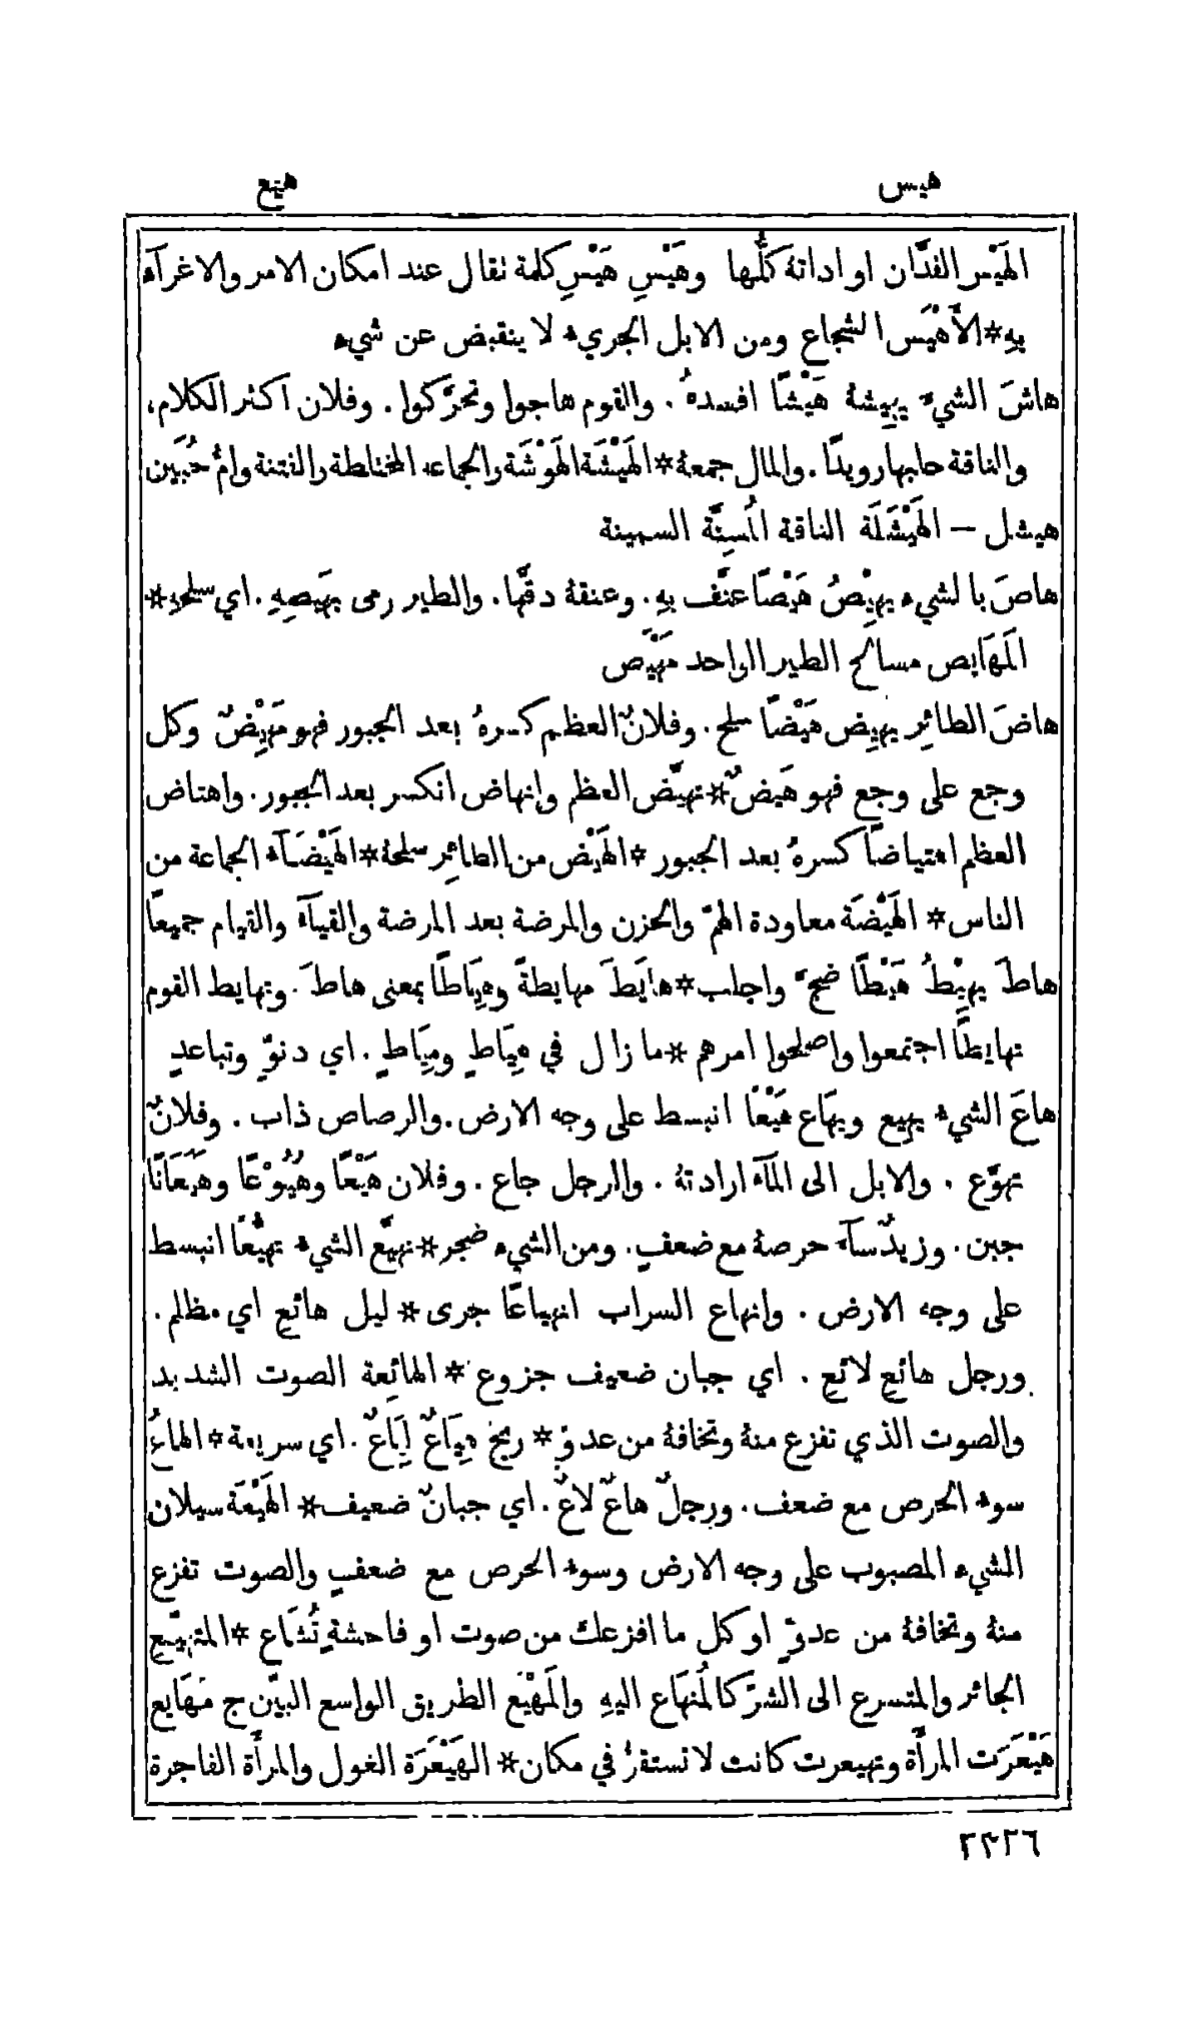 هيس
هيع
الهَيْس الفدَّان او اداتهُ كلُّها وهَيْسِ هَيْسِ كلمة تقال عند امكان الامر والاغرآء
بهِ * الأَهْيَس الشجاع ومن الابل الجريء لا ينقبض عن شيء
هاشَ الشيءَ يهيشهُ هَيْشًا افسدهُ . والقوم هاجوا وتحرَّكوا . وفلان اكثر الكلام،
والناقة حلبها رويدًا . والمال جمعهُ * الهَيْشَة الهَوْشَة والجماعة المختلطة والفتنة وامُّ حُبَين
هيشل – الهَيْشَلَة الناقة المُسِنَّة السمينة
هاصَ بالشيء يهِيْصُ هَيْصًا عنَّف بهِ . وعنقهُ دقَّها . والطير رمى بهَيصِهِ . اي سلحهِ *
المَهَايص مسالح الطير الواحد مَهْيَص
هاضَ الطائِر يهِيض هَيْضًا سلح . وفلانٌ العظم كسرهُ بعد الجبور فهو مَهِيْضٌ وكل
وجع على وجع فهو هَيضٌ * تهيَّض العظم وانهاض انكسر بعد الجبور . واهتاض
العظم اهتياضًا كسرهُ بعد الجبور * الهَيْض من الطائِر سلحهُ * الهَيْضَآء الجماعة من
الناس * الهَيْضَة معاودة الهمّ والحزن والمرضة بعد المرضة والقيآء والقيام جميعًا
هاطَ يهِيْطُ هَيْطًا ضجَّ واجلب * هايَطَ مهايطةً وهِيَاطًا بمعنى هاطَ . وتهايط القوم
تهايطًا اجتمعوا واصلحوا امرهم * ما زال في هِيَاطٍ ومِيَاطٍ . اي دنوٍّ وتباعدٍ
هاعَ الشيء يهيع ويهَاع هَيْعًا انبسط على وجه الارض . والرصاص ذاب . وفلانٌ
تهوَّع . والابل الى المآء ارادتهُ . والرجل جاع . وفلان هَيْعًا وهُيُوْعًا وهَيَعَانًا
جبن . وزيدٌ سآء حرصهُ مع ضعفٍ . ومن الشيء ضجر * تهيَّع الشيء تهيُّعًا انبسط
على وجه الارض . وانهاع السراب انهياعًا جرى * ليل هائع اي مظلم .
ورجل هائع لائع . اي جبان ضعيف جزوع * الهائِعة الصوت الشديد
والصوت الذي تفزع منهُ وتخافهُ من عدوٍّ * ريحٌ هِيَاعٌ لِيَاعٌ . اي سريعة * الهاعُ
سوء الحرص مع ضعف . ورجلٌ هاعٌ لاعٌ . اي جبانٌ ضعيف * الهَيْعَة سيلان
الشيء المصبوب على وجه الارض وسوء الحرص مع ضعفٍ والصوت تفزع
منهُ وتخافهُ من عدوٍّ او كل ما افزعك من صوت او فاحشةٍ تُشَاع * المتهيّع
الجائر والمتسرع الى الشرّ كالمُنهَاع اليهِ والمَهْيَع الطريق الواسع البيّن ج مَهَايع
هَيْعَرَت المرأَة وتهيعرت كانت لا تستقرُّ في مكان * الهَيْعَرَة الغول والمرأَة الفاجرة
٢٢٢٦